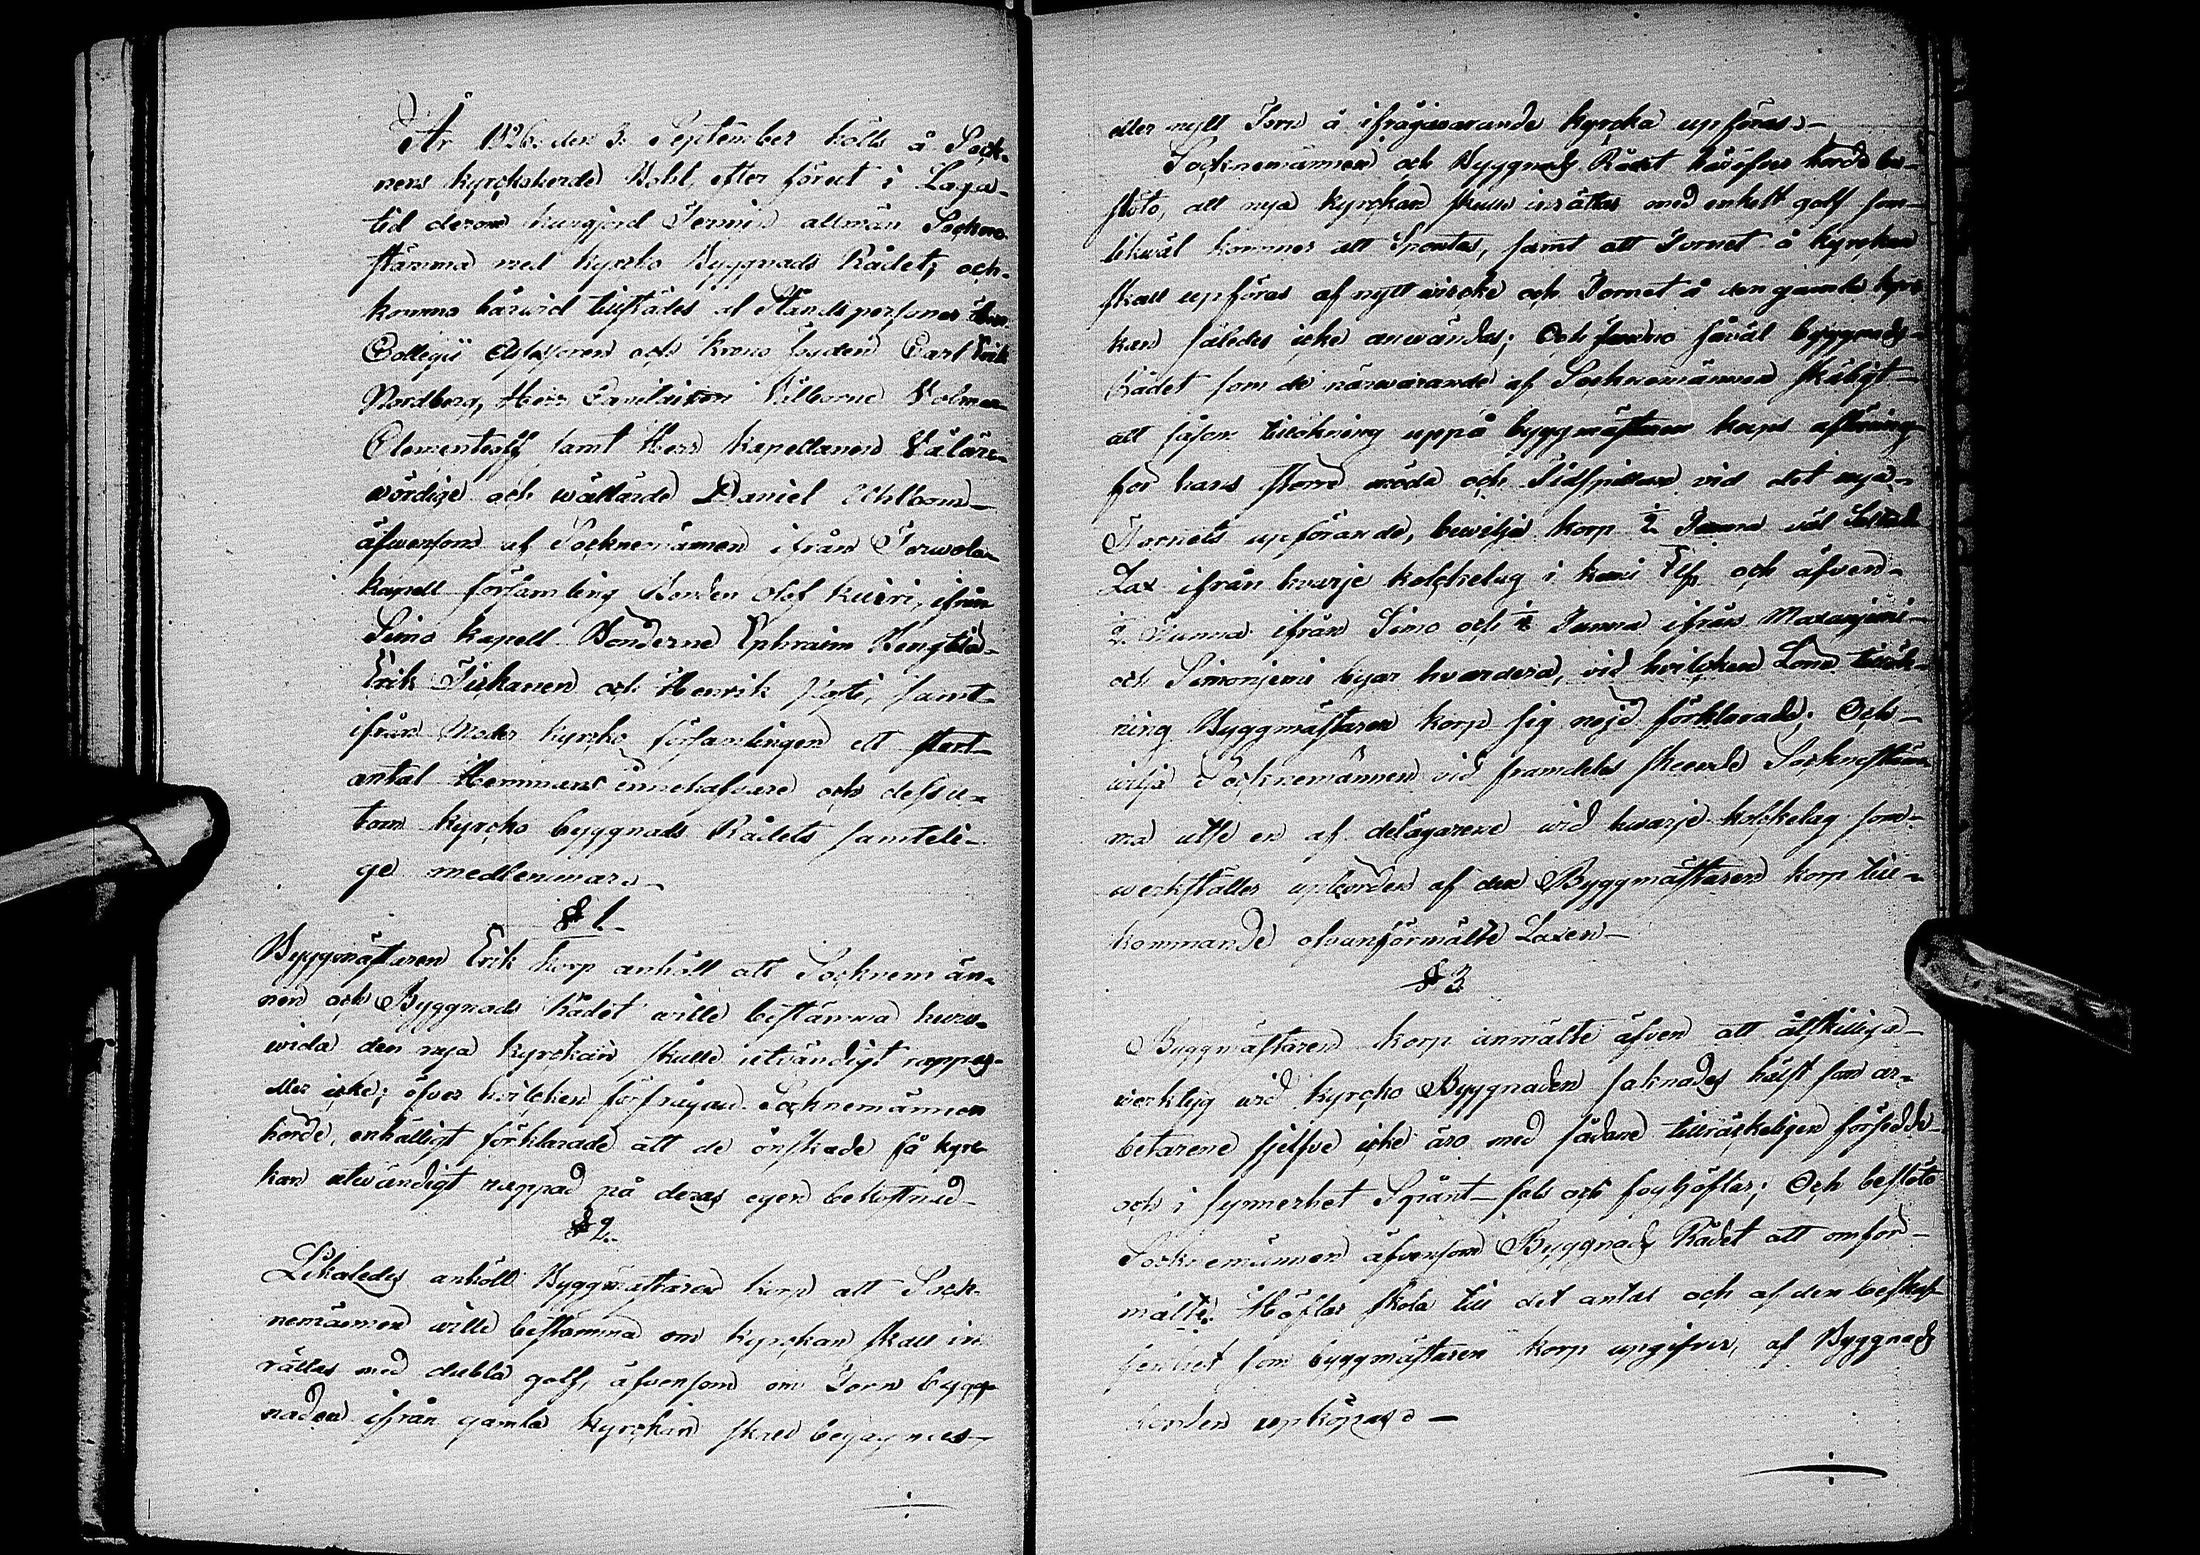 År 1826 den 3. September hölls å Sock-
nens kyrckoherde Bohl, efter förut i Laga-
tid derom kungjord Termin allmän Sockne-
stämma med kyrcko Byggnads Rådet; och-
kommo härwid tillstädes af Stånds personer Herr
Collegii Assessoren och krono fogden Carl Erik
Nordberg, Herr Wälborne Volmar
samt Herr kapellanen Wäläre-
wördige och wällärde Daniel
äfwensom af Socknemännen ifrån Terwola
kapell församling Bonden Olof kuiri, ifrån
Simo kapell Bönderne Ephraim
Erik Tiskanen och Henrik samt
ifrån Moder kyrcko församlingen ett stort
antal Hemmans innehafvare och dessu-
tom kyrcko byggnads Rådets samteli-
ge medlemmar.
§ 1.
Byggmästaren Erik korp anhöll att Socknemän-
nen och Byggnads Rådet wille bestämma huru-
wida den nya kyrckan skulle utvändigt rappas
eller icke; öfver hvilcken förfrågan Socknemännen
hörde, enhälligt förklarade att de önskade få kyrc-
kan utwändigt rappad på deras egen bekostnad
§ 2.
Likaledes anhöll Byggmästaren korp att Sock-
nemännen wille bestämma om kyrckan skall in-
rättas med dubla golf, äfvensom om Torn bygg-
naden ifrån gamla kyrckan skall begagnas
eller nytt Torn å ifrågavarande kyrcka upföras.
Socknemännen och Byggnads Rådet häröfver hörde be-
slöto, att nya kyrckan skulle inrättas med enkelt golf som
likwäl kommer att Spontas, samt att Tornet å kyrckan
skall upföras af nytt wircke och Tornet å den gamla kyrc-
kan således icke användas; Och såväl byggnads
Rådet som de närwarande af Socknemännen skäligt
att såsom tillökning uppå byggmästaren korps aflöning
för hans större möda och Tidspillan vid det nya
Tornets upförande, bewilja korp ½ Tunna väl Saltad
Lax ifrån hvarje kolckelag i kemi Elf och äfven
½ Tunna ifrån Simo och Tunna ifrån Maxaniemi
och Simoniemi byar hvardera, vid hvilcken Löne tillök-
ning Byggmästaren korp sig nöjd förklarade; Och
wilja Socknemännen vid framdeles skeende Socknestäm-
ma utse en af delägarene wid hwarje kolckelag som
werkställer upbörden af den Byggmästaren korp till-
kommande ofvanförmälte Laxen
§ 3.
Byggmästaren korp anmälte äfven att åtskilliga
werktyg wid kyrcko Byggnaden saknades hälst som ar-
betarene sjelfve icke äro med sådane tillräckeligen försedde
och i synnerhet Spänt- fals och foghöflar; Och beslöto
Socknemännen äfvensom Byggnads Rådet att omför-
mälte Höflar skola till det antal och af den beskaf-
fenhet som byggmästaren korp upgifver, af Byggnads
upköpas